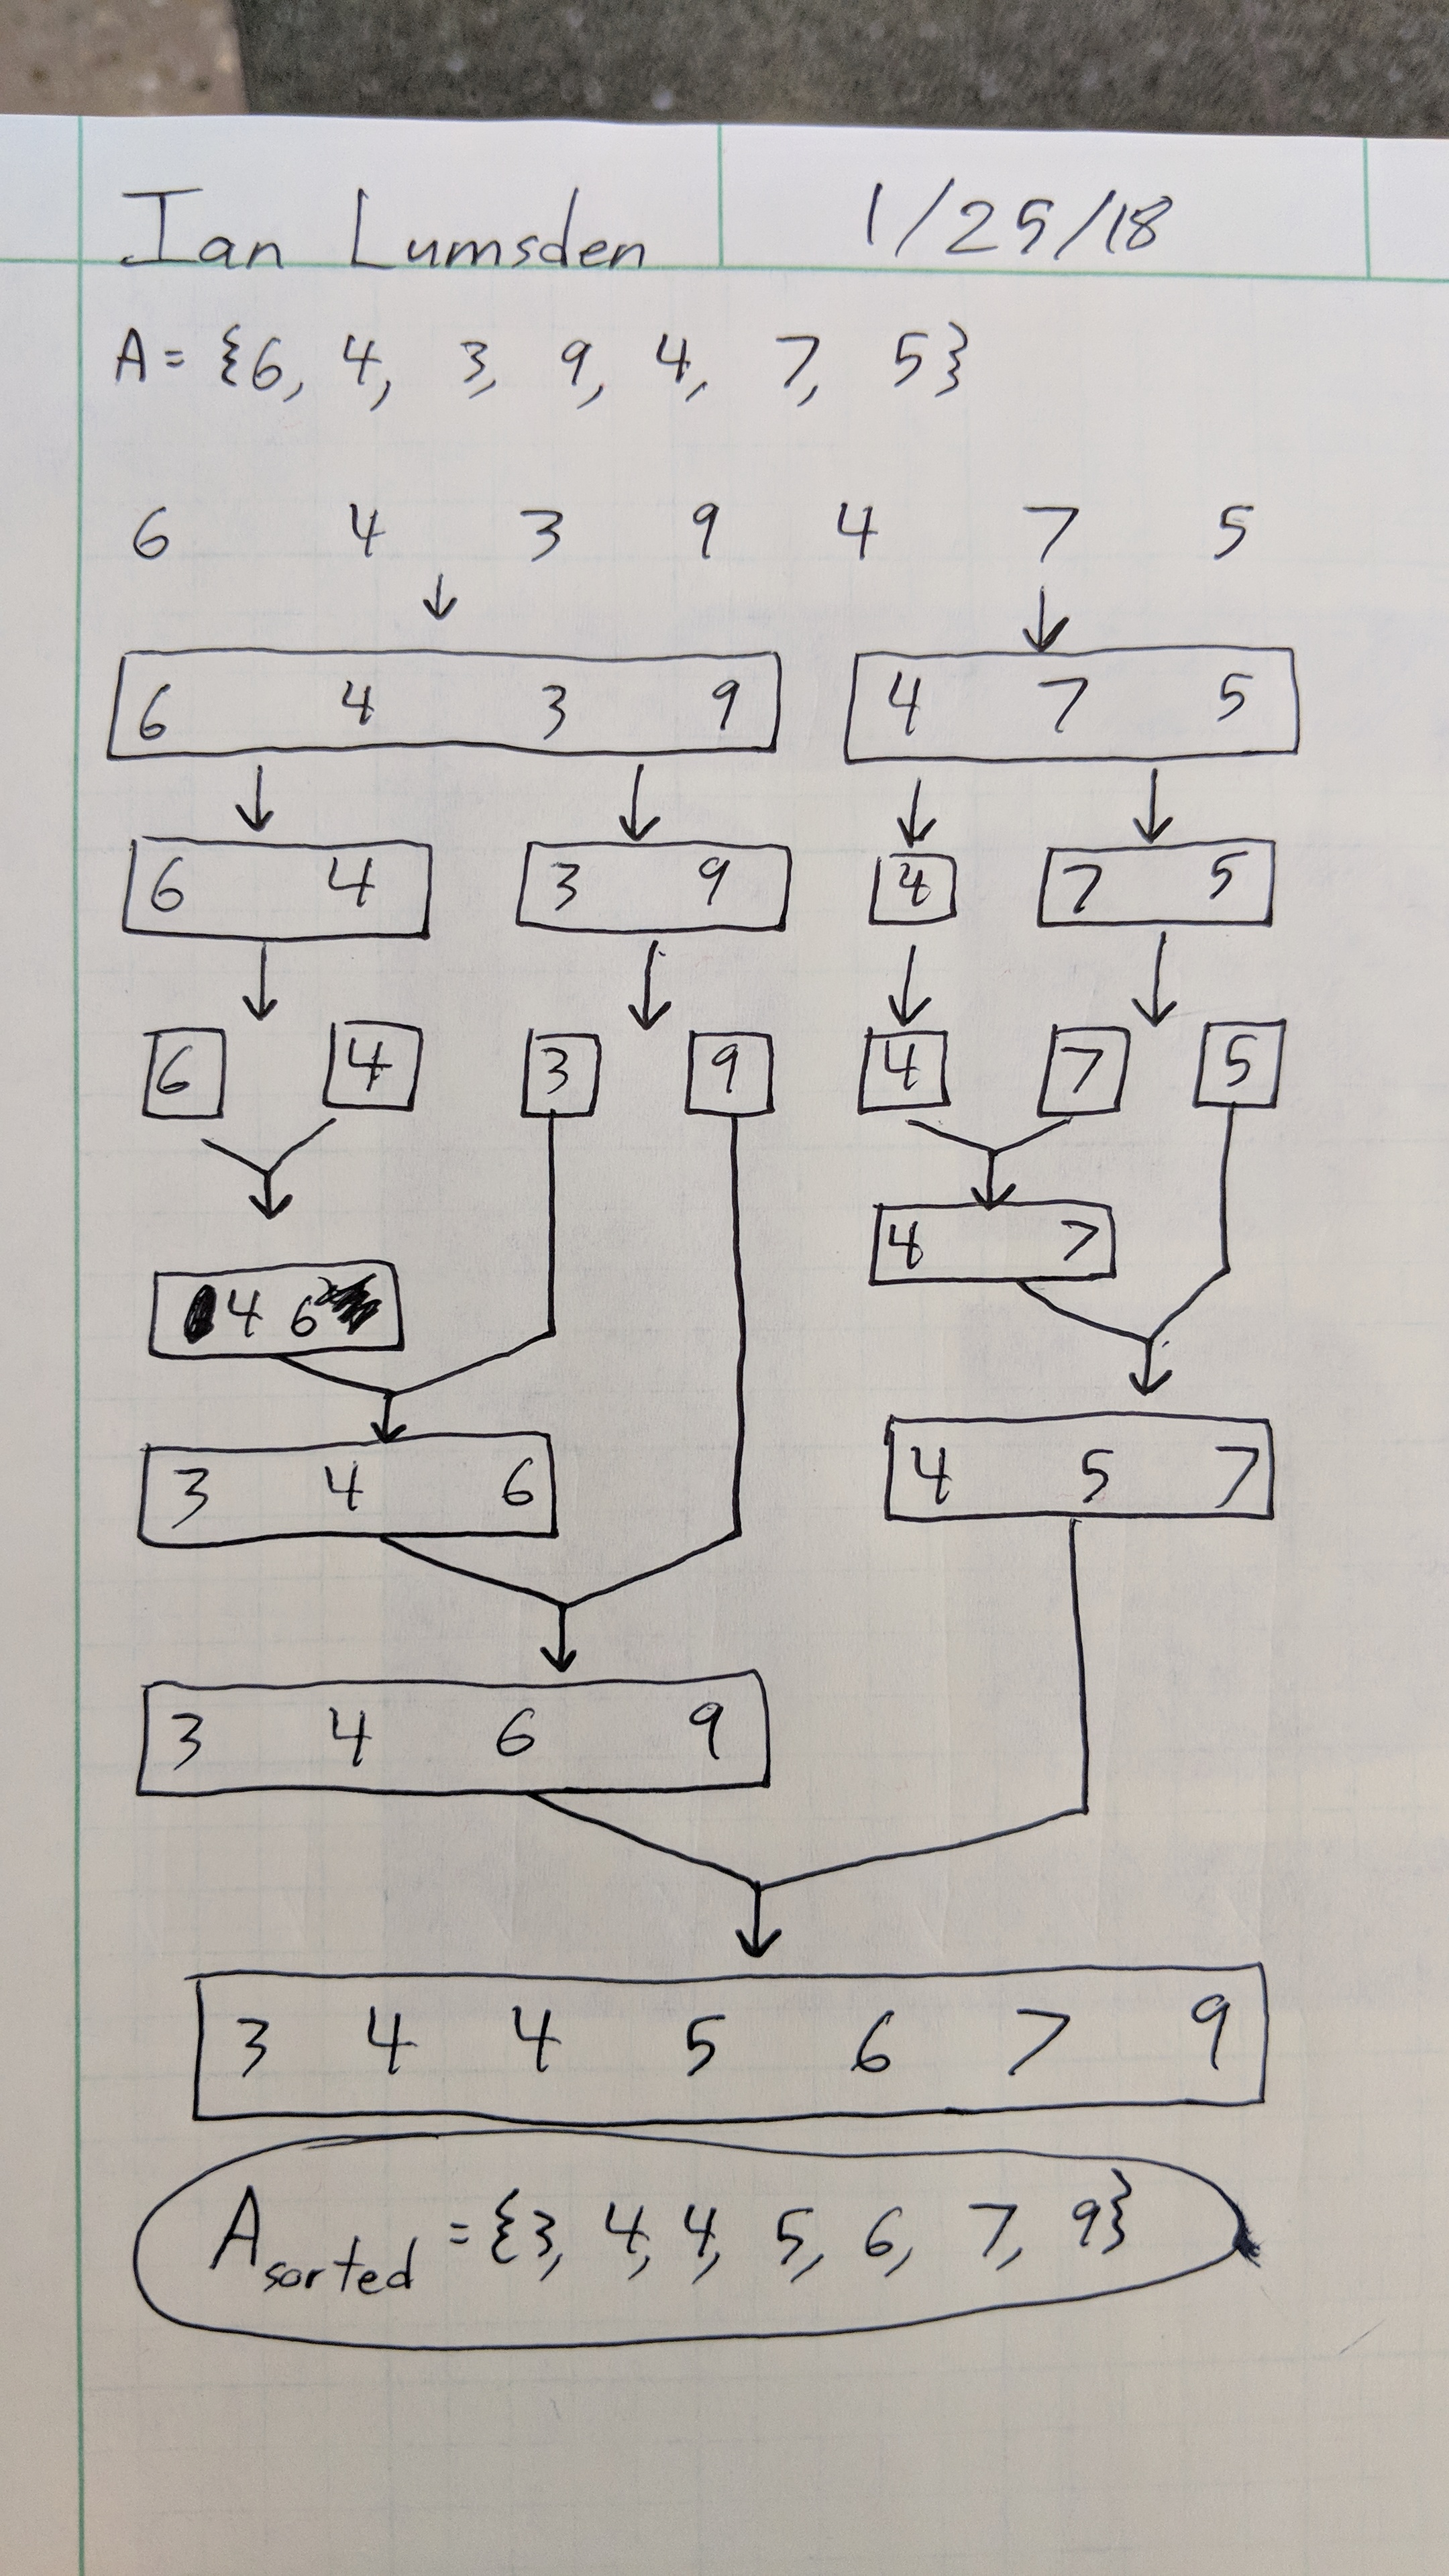 Ian Lumsden 1/25/18
A = {6, 4, 3, 9, 4, 7, 5}
6 4 3 9 4 7 5
6 4 3 9 4 7 5
6 4 3 9 4 7 5
6 4 3 9 4 7 5
4 7
4 6
3 4 6 4 5 7
3 4 6 9
3 4 4 5 6 7 9
A sorted = {3, 4, 4, 5, 6, 7, 9}